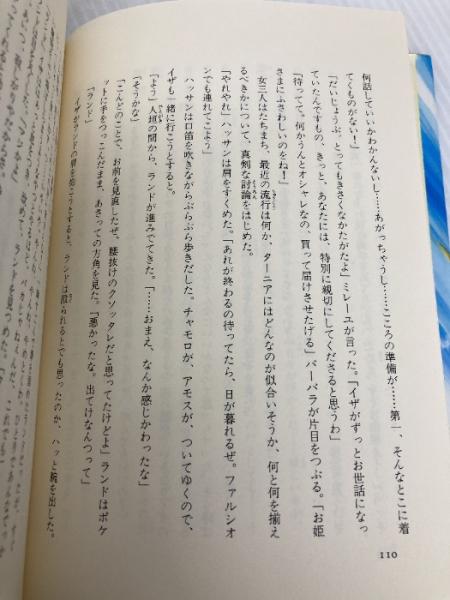 何話していいかわかんないし……あがっちゃうし……こころの準備が……第一、そんなとこに着
てくものがない！」
「だいじょうぶ、とってもきさくなかたがたよ」ミレーユが言った。「イザがずっとお世話になっ
ていたんですもの、きっと、あなたには、特別に親切にしてくださると思うわ」
「待ってて。何かうんとオシャレなの、買って届けさせたげる」バーバラが片目をつぶる。「お姫
さまにふさわしいのをね！」
女三人はたちまち、最近の流行は何か、ターニアにはどんなのが似合いそうか、何と何を揃え
るべきかについて、真剣な討論をはじめた。
「やれやれ」ハッサンは肩をすくめた。「あれが終わるの待ってたら、日が暮れるぜ。ファルシオ
ンでも連れてこよう」
ハッサンは口笛を吹きながらぶらぶら歩きだした。チャモロが、アモスが、ついてゆくので、
イザも一緒に行こうとすると。
「よう」人垣の間から、ランドが進みでてきた。「……おまえ、なんか感じかわったな」
「そうかな」
「こんどのことで、お前を見直したぜ。腰抜けのクソッタレだと思ってたけどよ」ランドはポケ
ットに手をつっこんだまま、あさっての方角を見た。「悪かったな。出てけなんつって」
「ランド」
イザがランドの肩を抱こうとすると、ランドは殴られるとでも思ったのか、ハッと腕を出した。
110